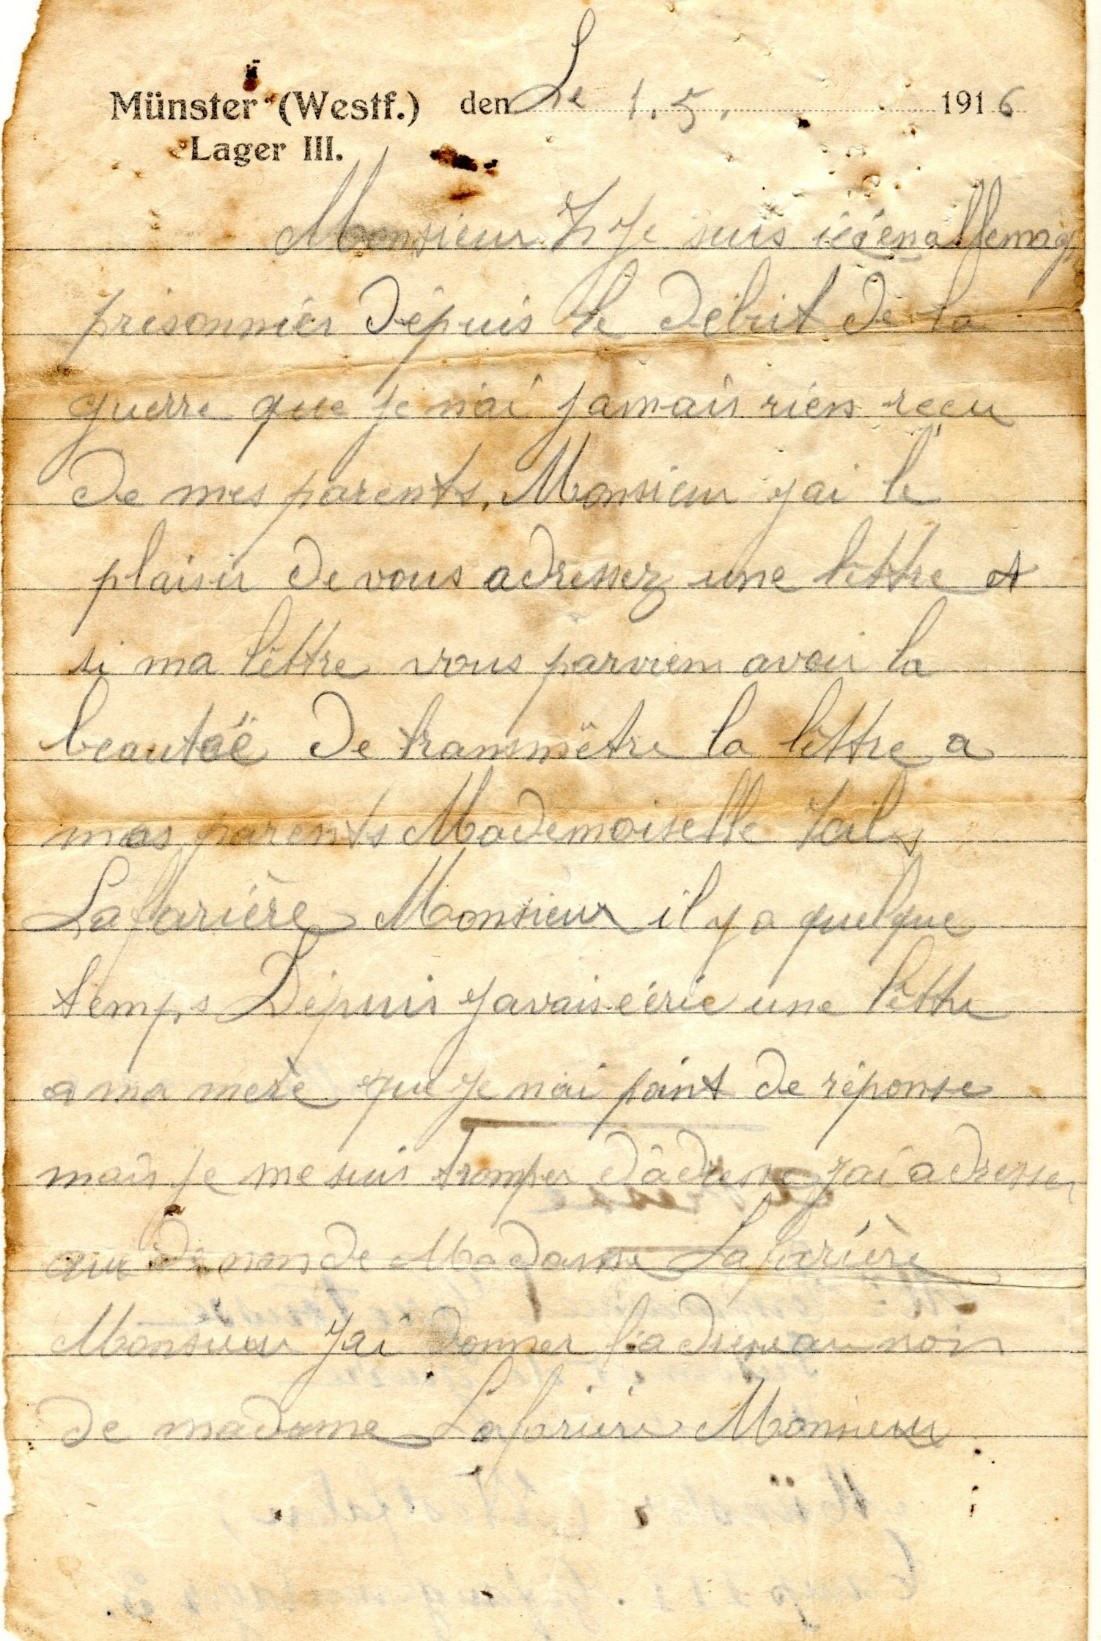 Münster (Westf.) den Le 1.5. 1916
Lager III.
Monsieur Je suis ici en allemag
prisonnièr dépuis le début de la
guerre que je n'ai jamais rien reçu
de mes parents. Monsieur jai le
plaisir de vous adressez une lettre et
si ma lettre vous parvien avoir la
beautëe de transmetre la lettre a
mes parents Mademoiselle
Lafarière Monsieur il y a quelque
temps Dépuis javais écrie une lettre
a ma mere que je n'ai point de réponse
mais je me suis tromper d'adresse jai adresser
au nom de Madame Lafarière
Monsieur jai donner l'adresse au nom
de madame Lafarière Monsieur